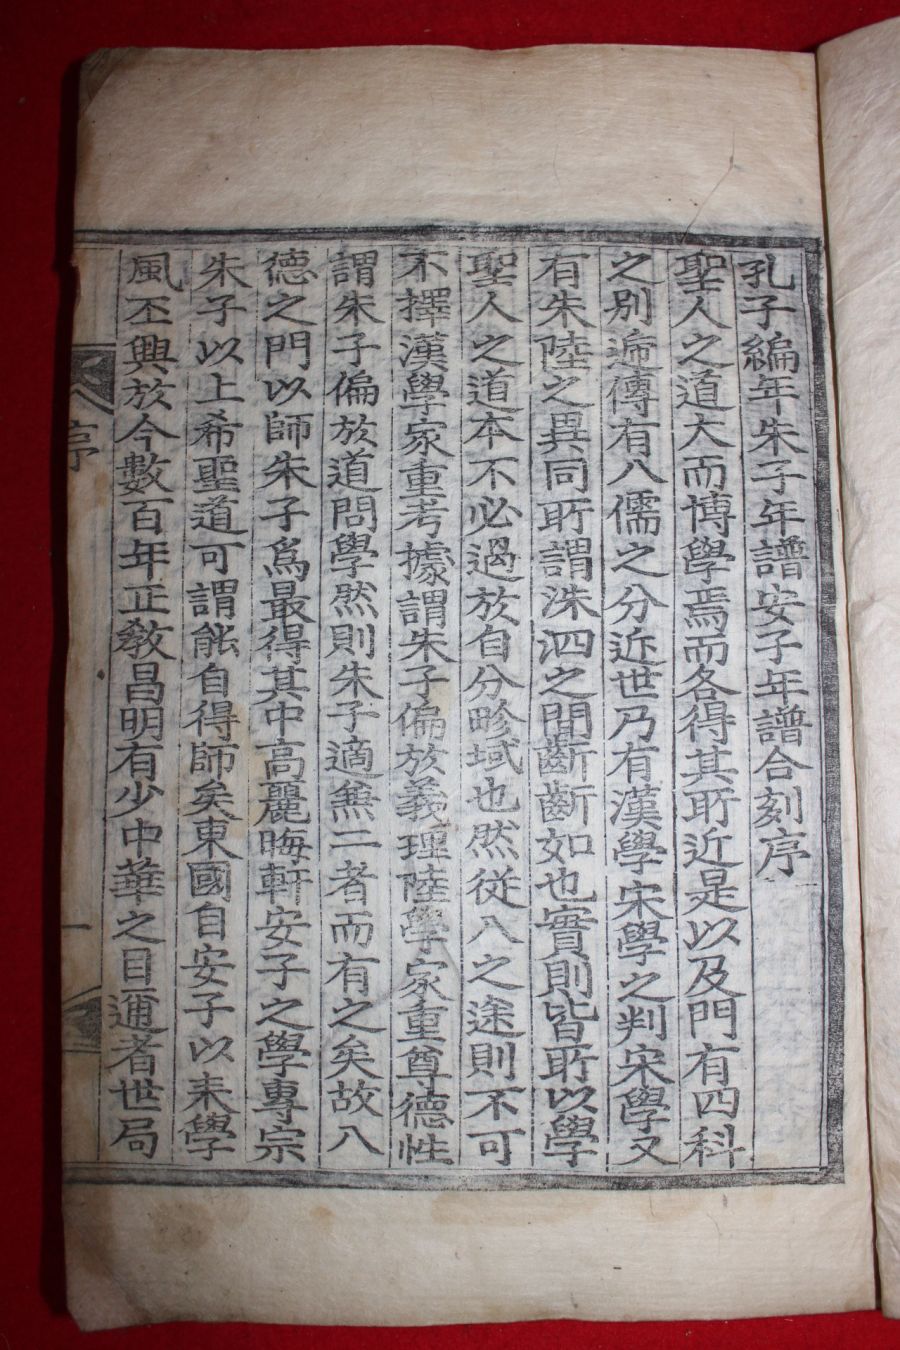 孔子編年朱子年譜安子年譜合刻序
聖人之道大而博學焉而各得其所近是以及門有四科
之別遞傳有八儒之分近世乃有漢學宋學之判宋學又
有朱陸之異同所謂洙泗之間齗齗如也實則皆所以學
聖人之道本不必過於自分畛域也然從入之途則不可
不擇漢學家重考據謂朱子偏於義理陸學家重尊德性
謂朱子偏於道問學然則朱子適無二者而有之矣故入
德之門以師朱子爲最得其中高麗晦軒安子之學專宗
朱子以上希聖道可謂能自得師矣東國自安子以来學
風丕興於今數百年正教昌明有少中華之目邇者世局
序
一